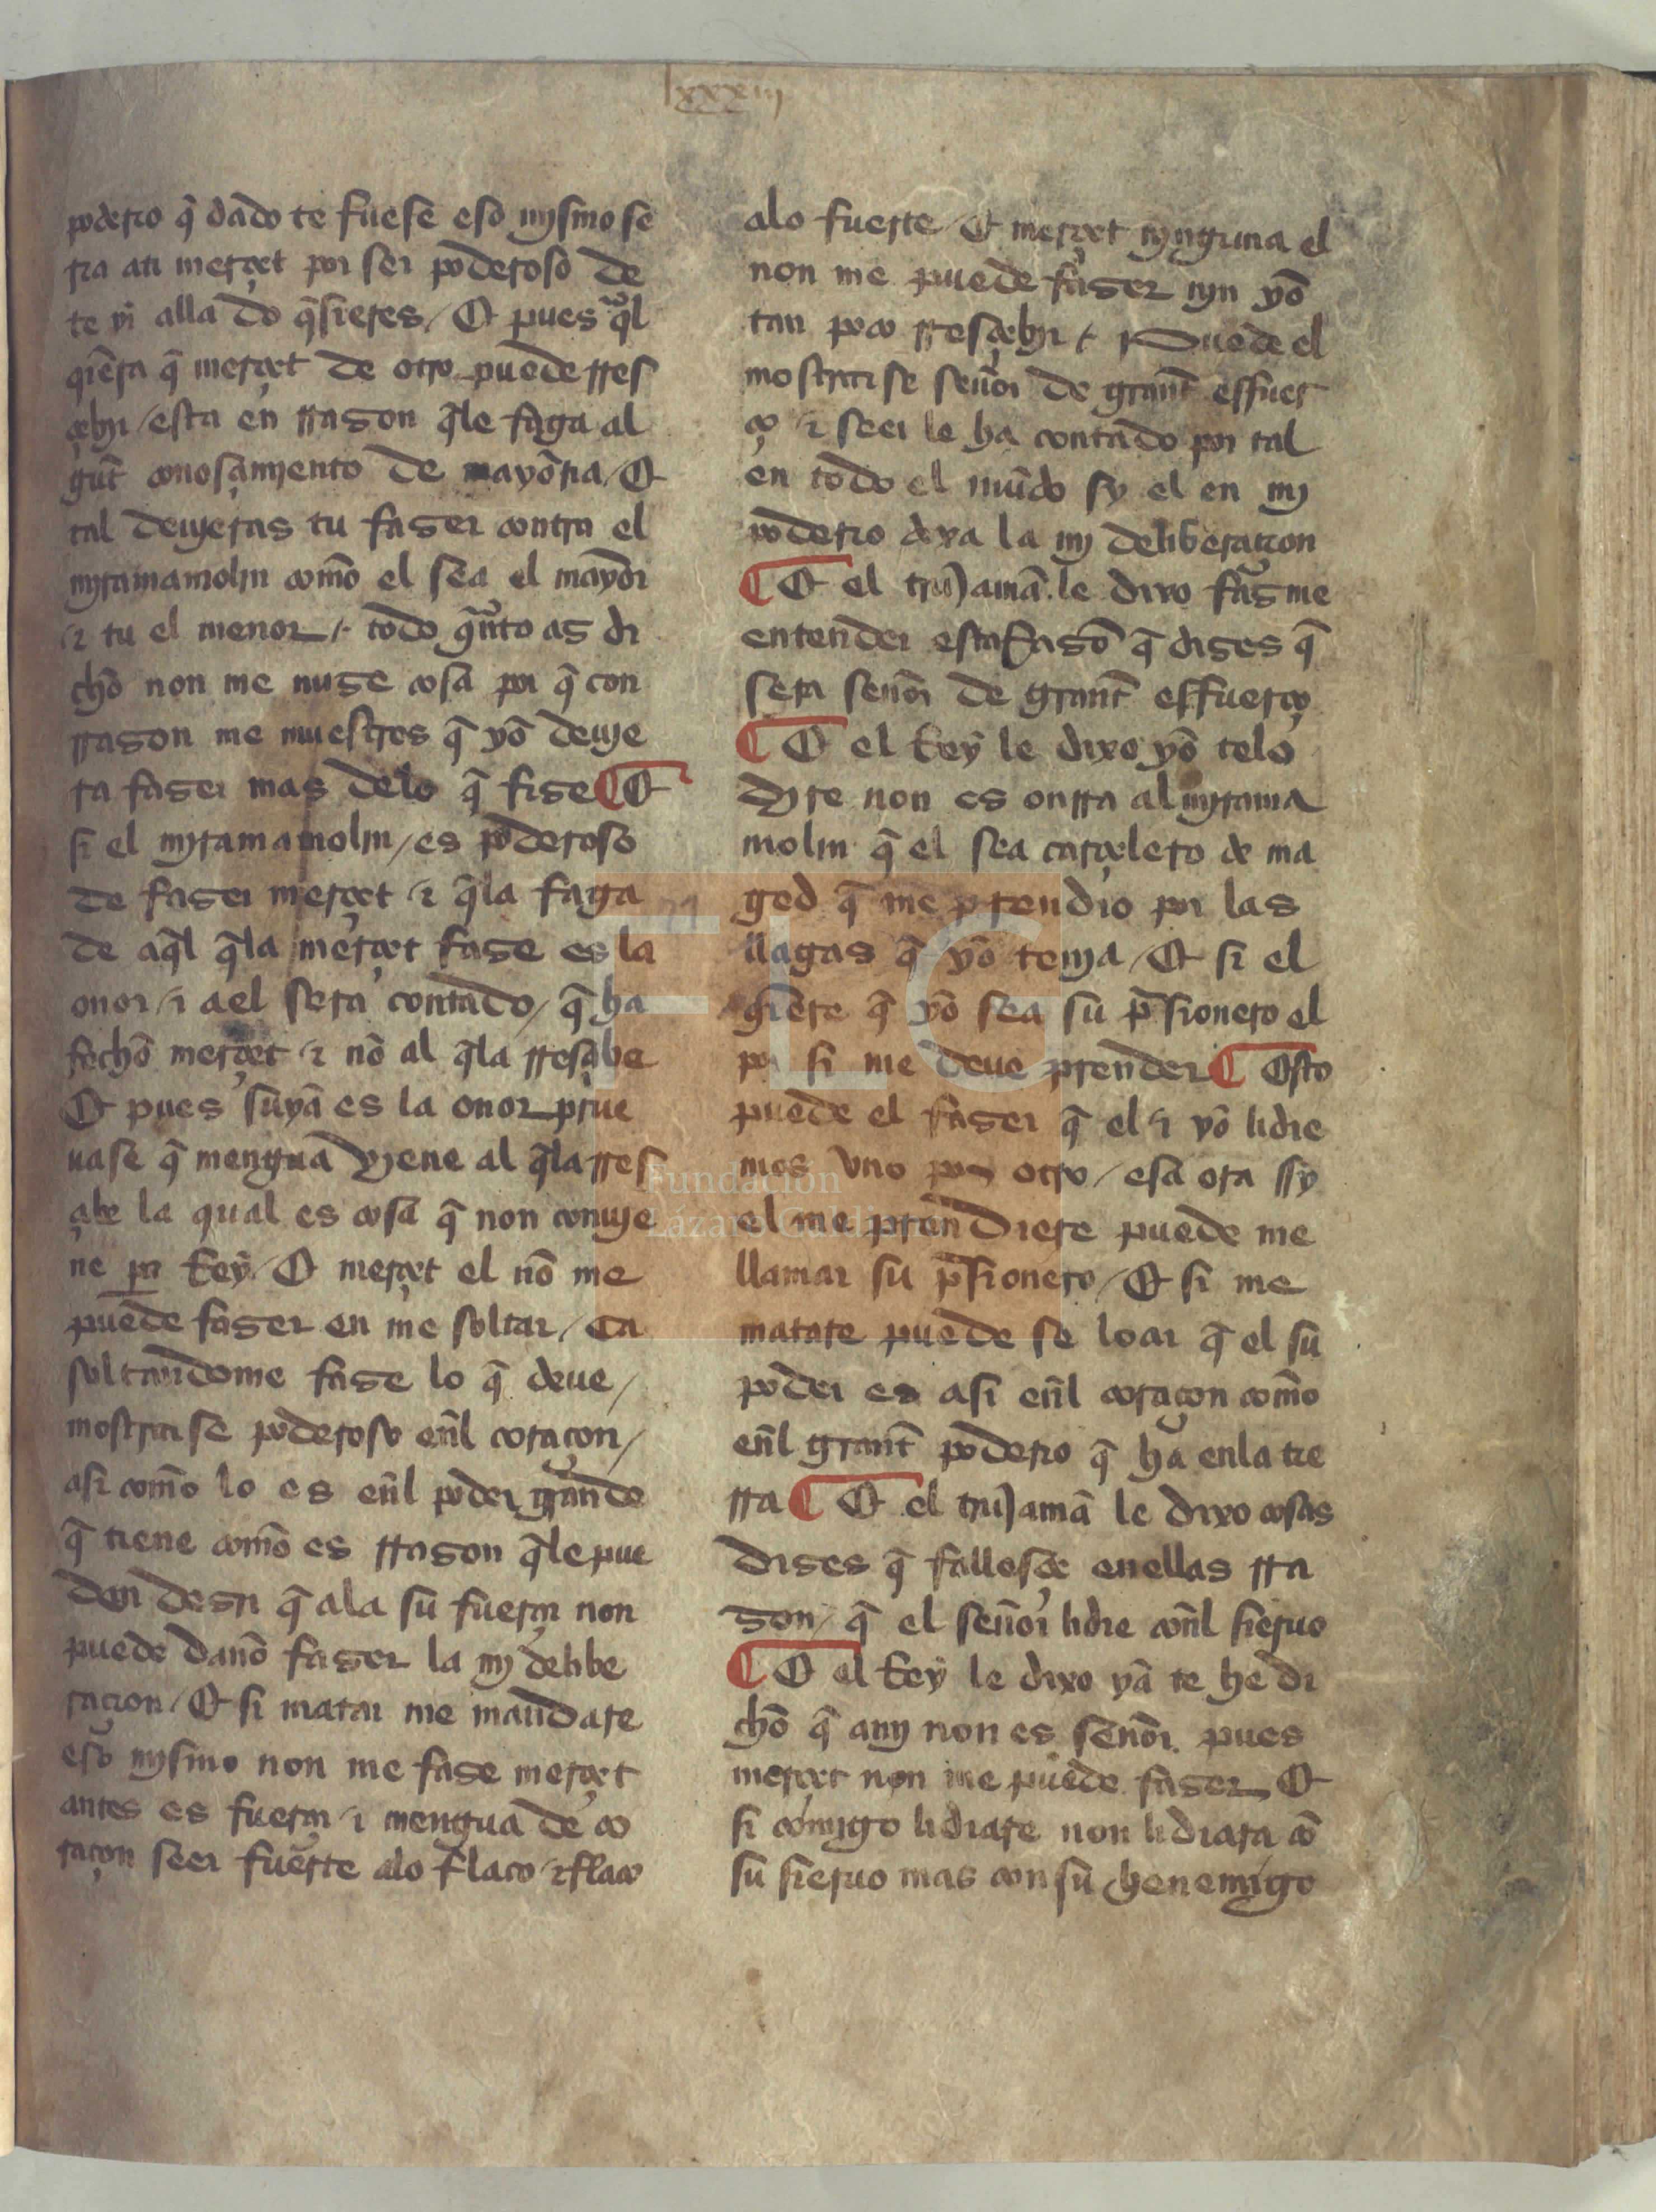 lxxxiij
poderio q̃ dado te fuese eso mjsmo se
ria ati merçet por ser poderoso de
te yr alla do q̃sieres / E pues q̃l
quiera q̃ merçet de otro puede rres
çebyr / esta en rrason q̃le faga al
gũt conosçimjento de mayoria / E
tal deujeras tu faser contra el
mjramamoljn commo el sea el mayor
⁊ tu el menor / todo quãto as di
cho non me nuse cosa por q̃ con
rrason me muestres q̃ yo deuje
ra faser mas delo q̃ fise ¶ E
si el mjramamoljn / es poderoso
de faser merçet ⁊ q̃la faga
de aq̃l q̃la merçet fase es la
onor / ⁊ a el sera contado / q̃ ha
fecho merçet ⁊ nõ al q̃la rresçibe
E pues suya es la onor prue
uase q̃ mengua vjene al q̃la rres
çibe la qual es cosa q̃ non conuje
ne pa Rey / E merçet el nõ me
puede faser en me soltar / Ca
soltandome fase lo q̃ deue /
mostrarse poderoso enl coraçon /
asi commo lo es enl poder grande
q̃ tiene commo es rrason q̃le pue
dan desir q̃ ala su fuerça non
puede daño faser la mj delibe
raçion / E si matar me mandare
eso mjsmo non me fase merçet
antes es fuerça ⁊ mengua de co
raçon seer fuerte alo flaco ⁊ flaco
alo fuerte / E merçet njnguna el
non me puede faser njn yo
tan poco rresçebyr / Puede el
mostrarse señor de grant effuer
ço ⁊ seer le ha contado por tal
en todo el mũdo sy el en mj
poderio dexa la mj deliberaçion
¶ E el trujamã le dixo fasme
entender esta Rasõ q̃ dises q̃
sera señor de grant effuerço
¶ E el Rey le dixo yo telo
dyre non es onrra al mjrama
moljn q̃ el sea carçelero de ma
ged q̃ me prendio por las
llagas q̃ yo tenja / E si el
q̃iere q̃ yo sea su p̃sionero el
por si me deue prender ¶ Esto
puede el faser q̃ el ⁊ yo lidie
mos vno por otro / esa ora sy
el me prendiere puede me
llamar su p̃sionero / E si me
matare puede se loar q̃ el su
poder es asi enl coraçon commo
enl grant poderio q̃ ha enla tie
rra ¶ E el trujamã le dixo cosas
dises q̃ fallesçe enellas rra
son / q̃ el señor lidie conl sieruo
¶ E el Rey le dixo ya te he di
cho q̃ amj non es señor pues
merçet non me puede faser E
si comjgo lidiare non lidiara cõ
su sieruo mas con su henemigo
FLG
Fundación
Lázaro Galdiano